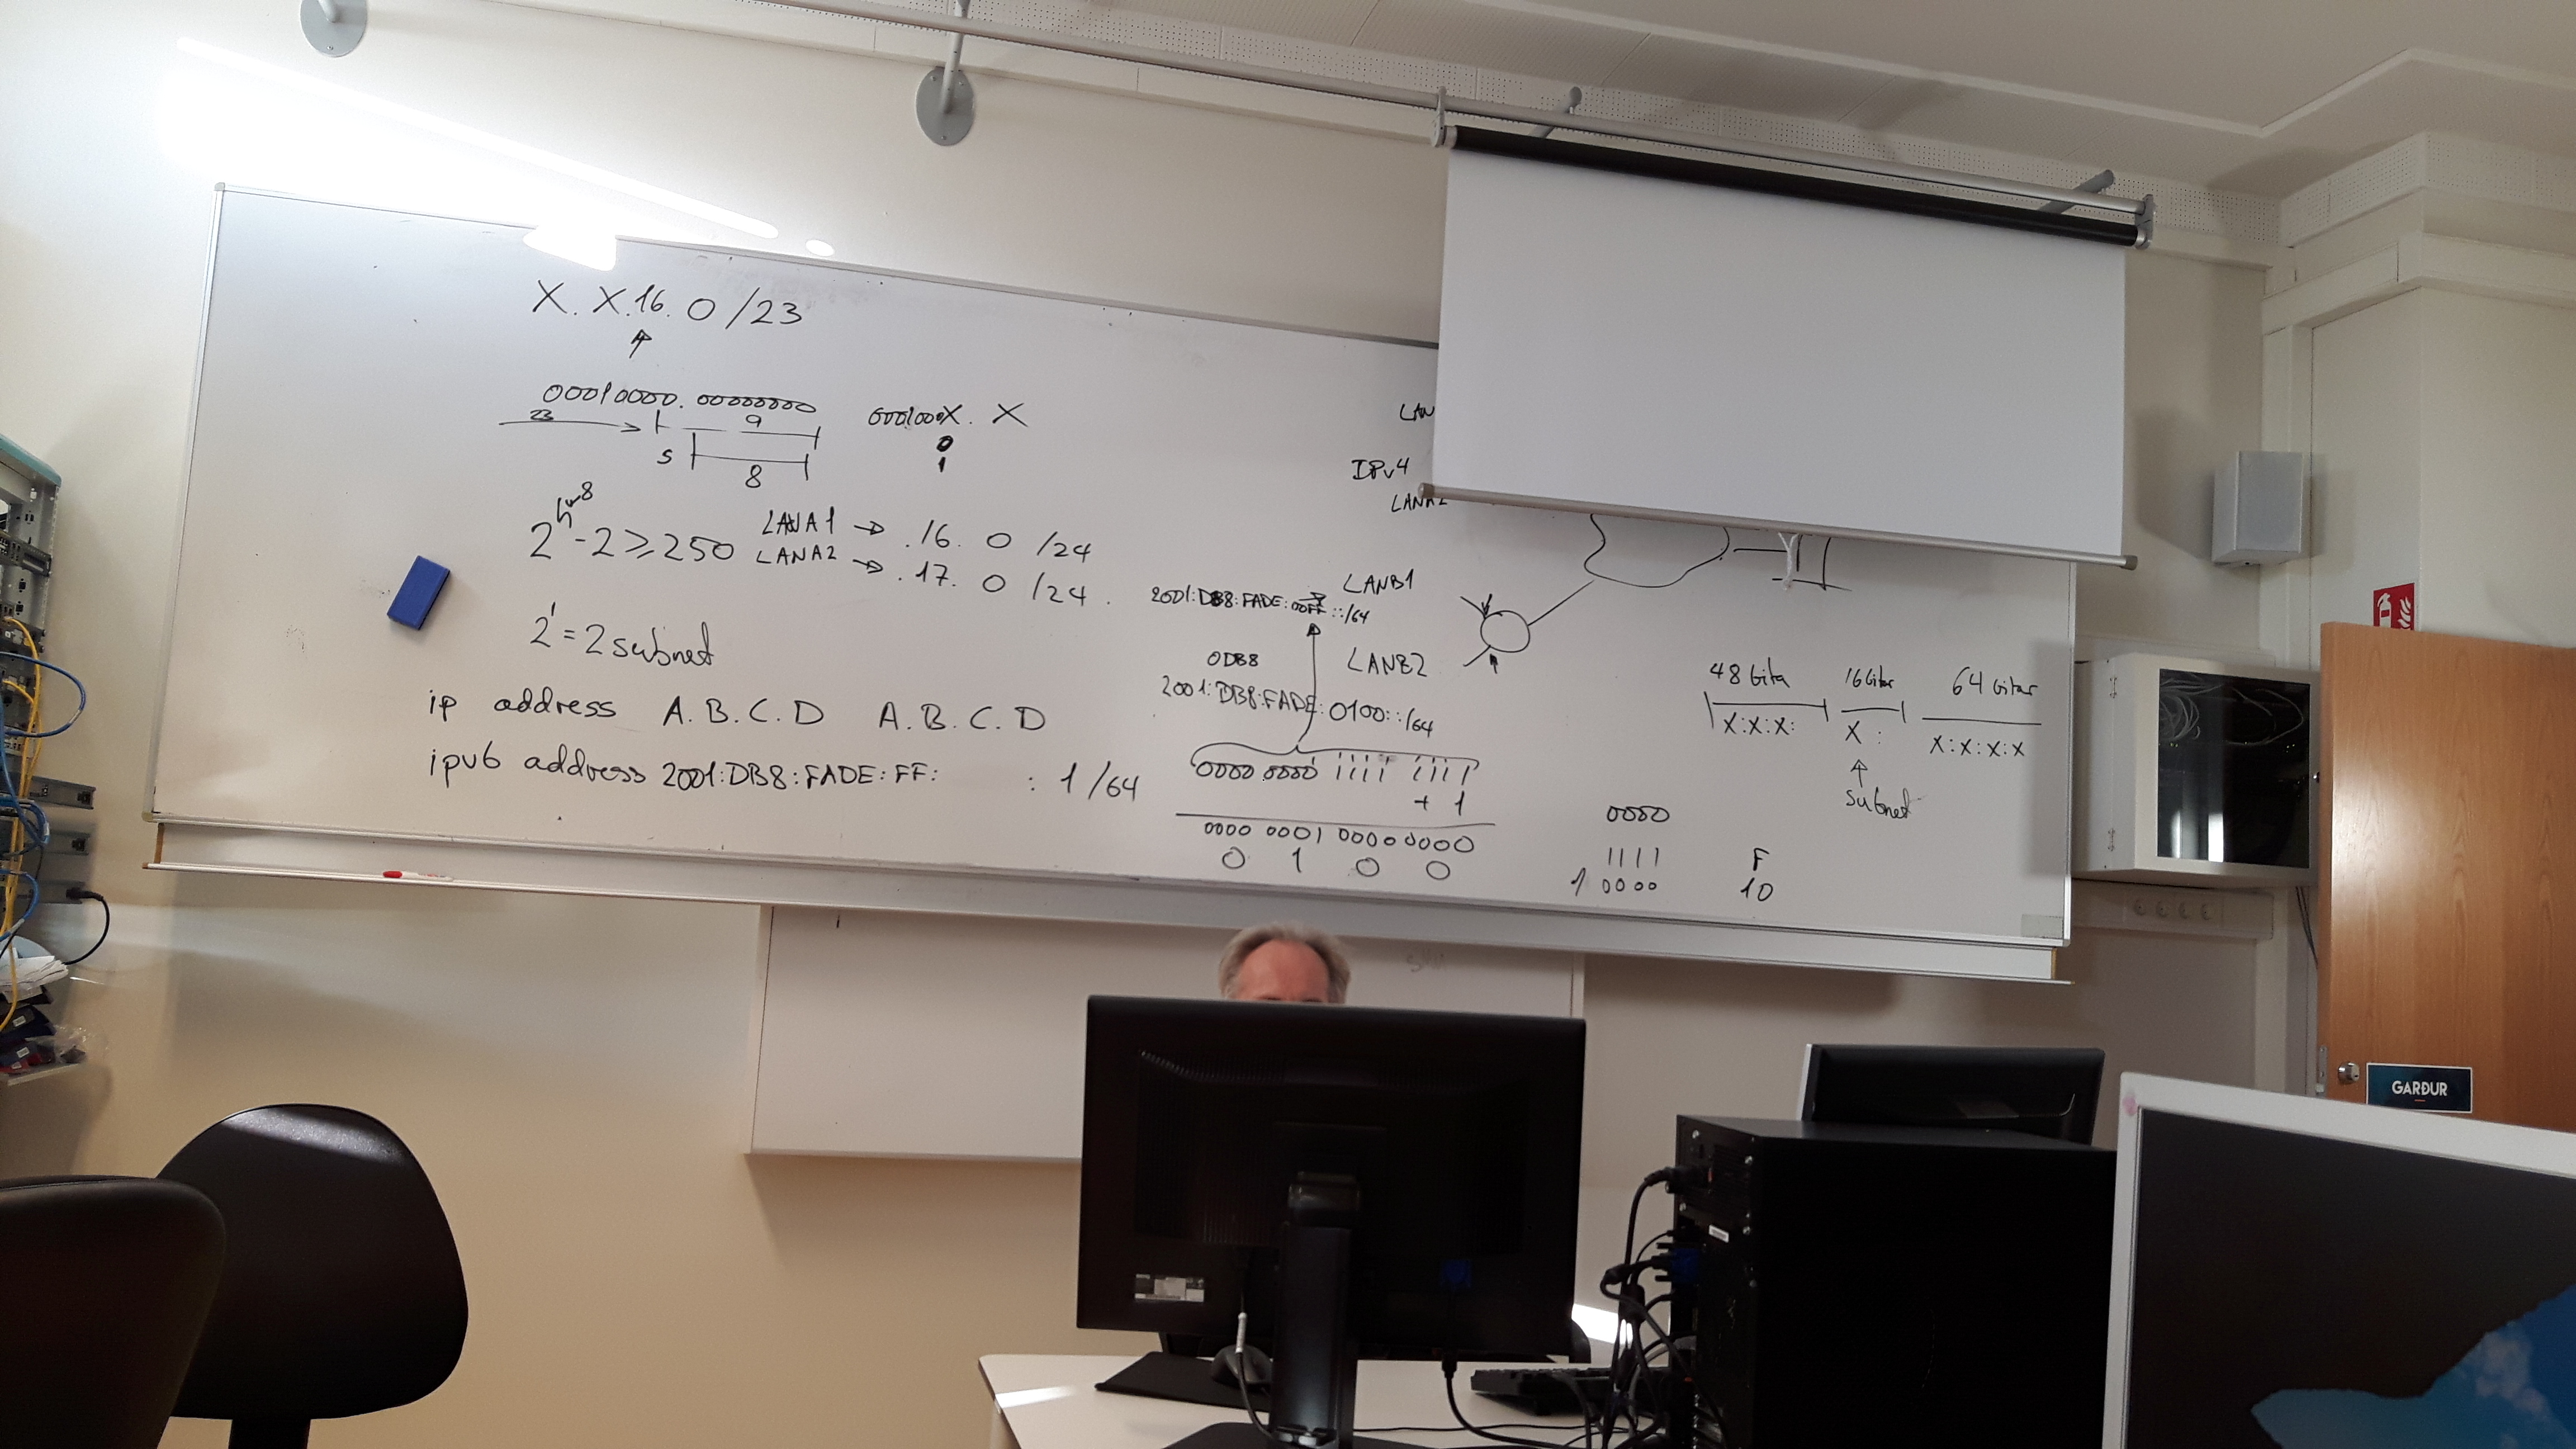 X. X.16. 0 /23
00010000. 00000000
23
9
s
8
0001000X. X
0
1
2^h=8 -2 ≥ 250
LANA1 → .16. 0 /24
LANA2 → .17. 0 /24.
2^1 = 2 subnet
ip address A.B.C.D A.B.C.D
ipv6 address 2001:DB8:FADE:FF: :1 /64
LAN
IPv4
LANA2
LANB1
2001:DB8:FADE:00FF::/64
0DB8
LANB2
2001:DB8:FADE:0100::/64
0000 0000 1111 1111
+ 1
0000 0001 0000 0000
0 1 0 0
0000
1111 F
1 0000 10
48 bita 16 bitar 64 bitar
X:X:X: X: X:X:X:X
subnet
GARÐUR